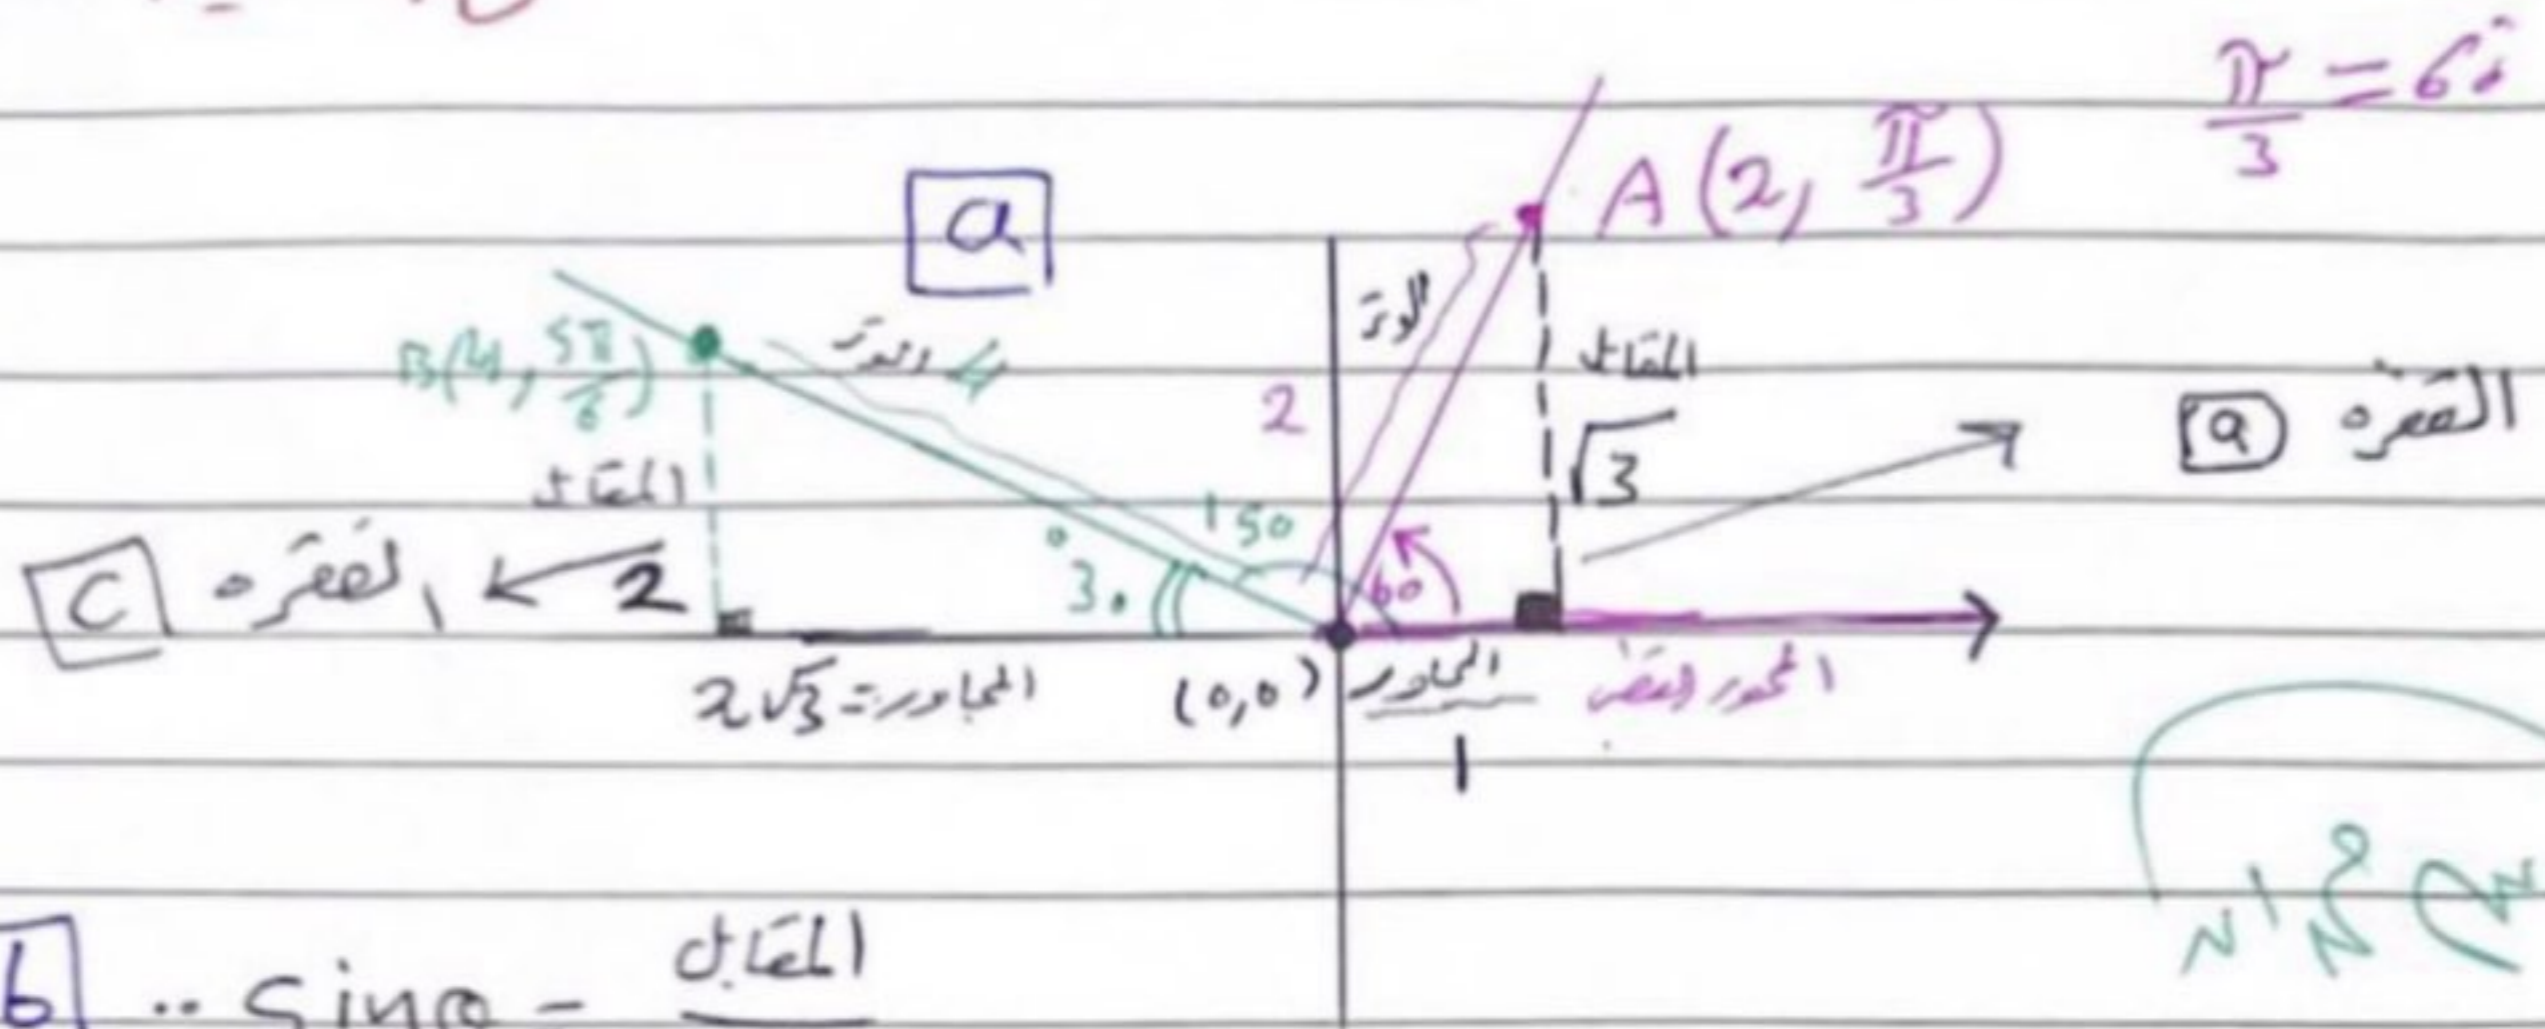 π/3 = 60°
A (2, π/3)
a
B(4, 5π/6)
4 الوتر
الوتر
2
المقابل
√3
الفقرة a
المقابل
150
30°
60
2
الفقرة C
المجاور = 2√3
(0,0)
المجاور
المحور القطبي
1
b .. sin θ = المقابل